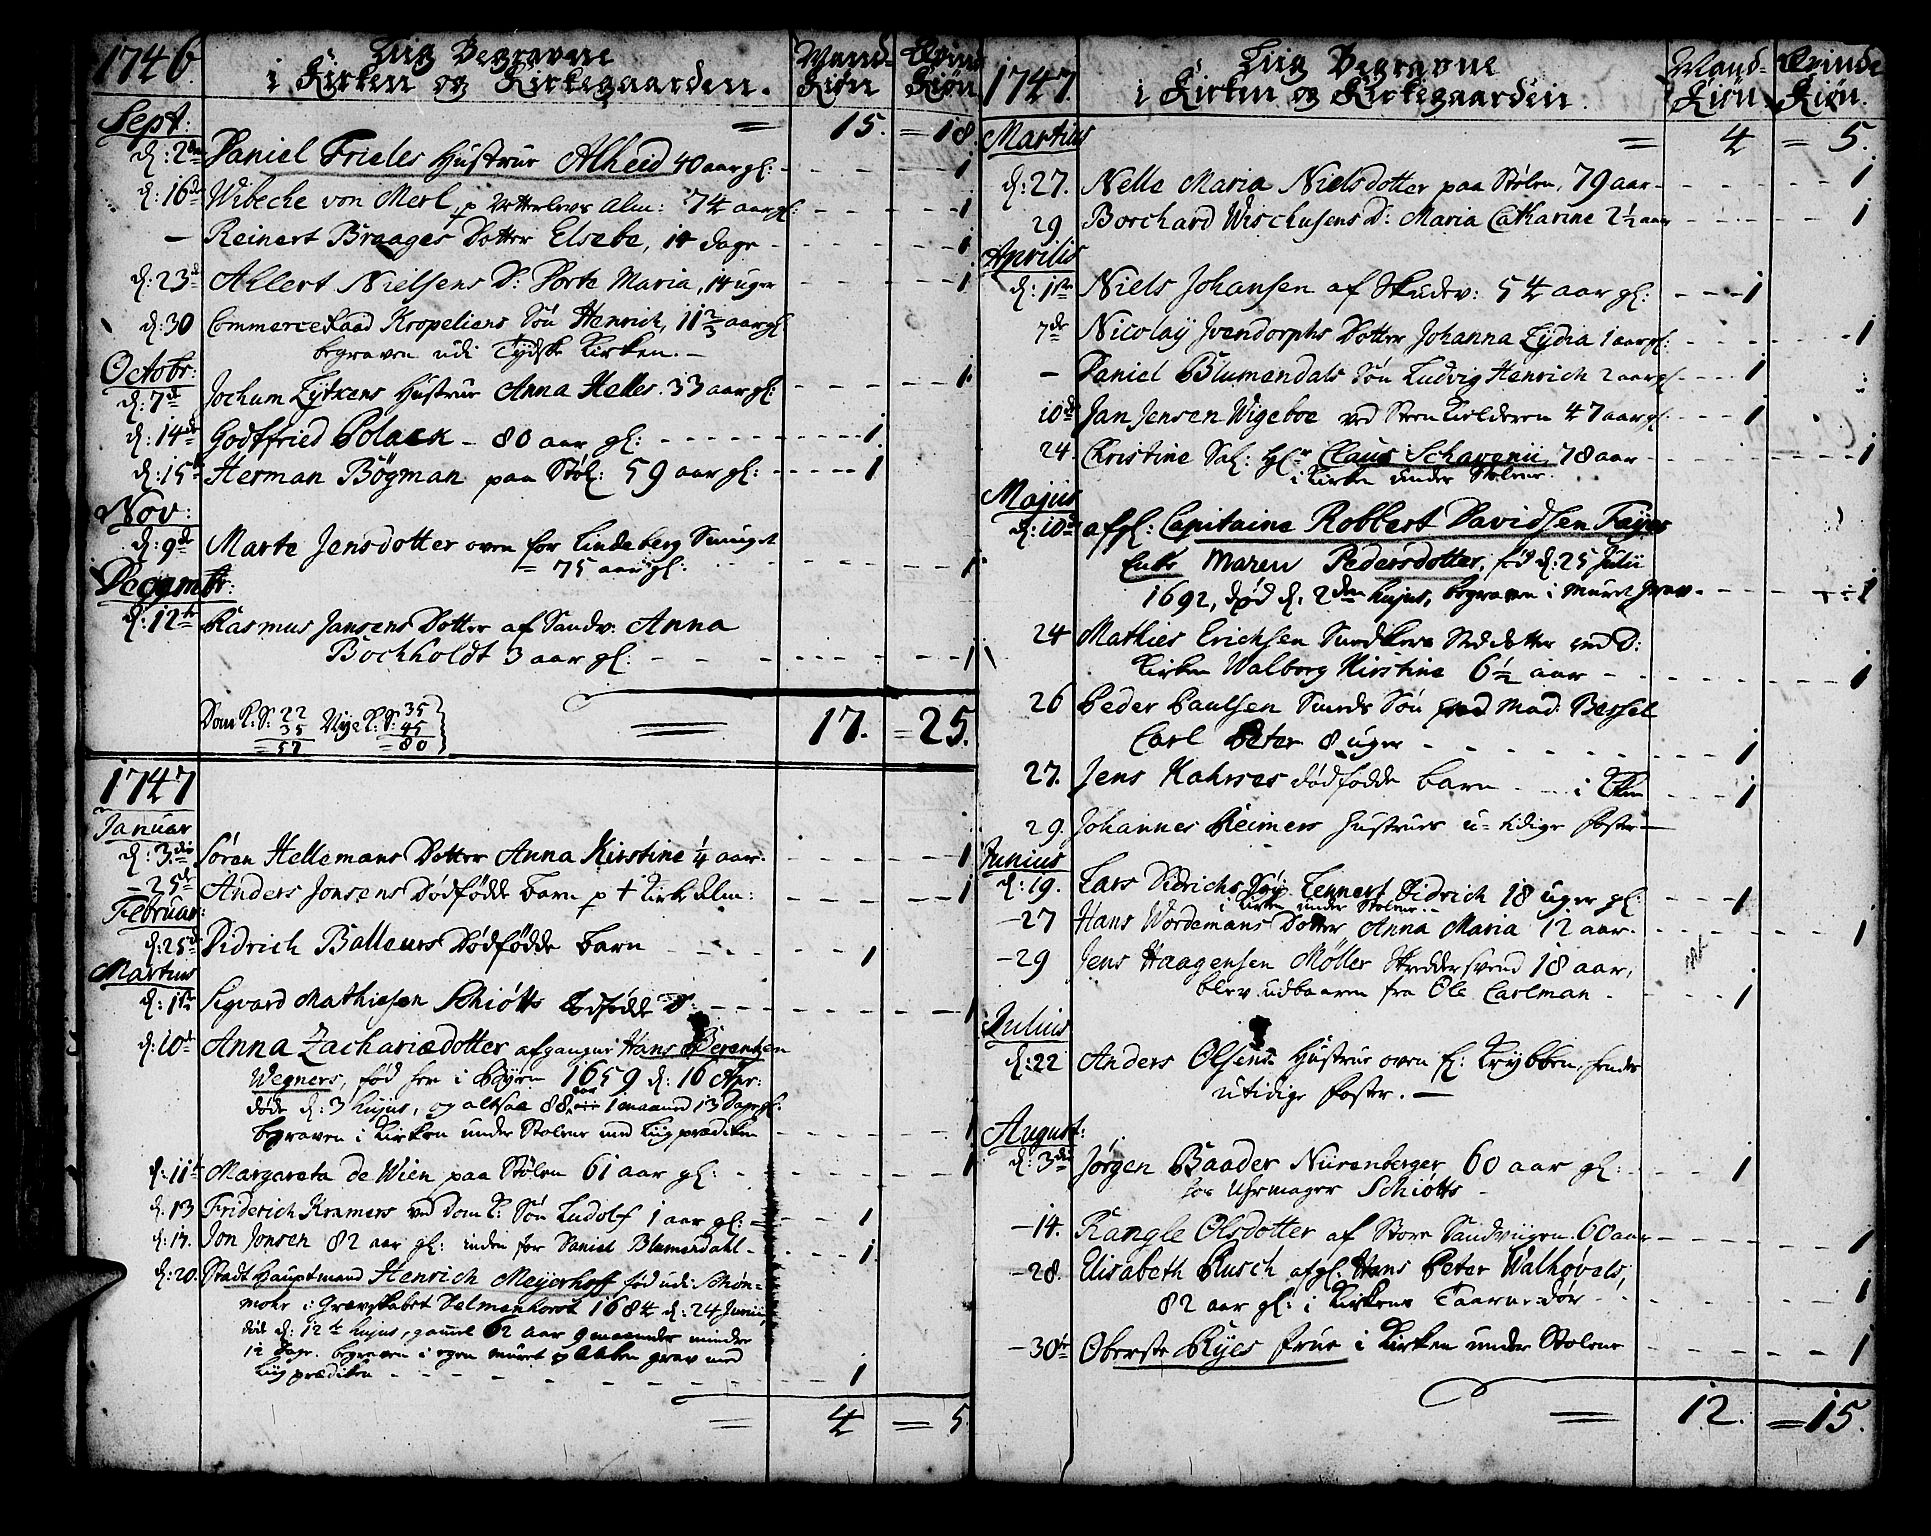 1746.
Liig Begravne
i Kirken og Kirkegaarden.
Mand-
Kiøn
Qvinde
Kiøn
Sept:
= 15. = 18.
d: 2den Daniel Frieles Hustrue Alheed 40 aar gl: 1
d: 16de Wibeche von Merl, p alm: 74 aar gl: 1
— Reinert Braages Dotter Elsebe, 14 dage 1
d: 23de Ahlert Nielsens D: Dorte Maria, 14 uger 1
d: 30 Commerce Raad Kropeliens Søn Henrich, 11 2/3 aar gl
begraven udi Tydske Kirken. —
Octobr:
d: 7de Jochum Lytkens Hustrue Anna Helles. 33 aar gl: 1
d: 14de Godtfried Polack — 80 aar gl: 1
d: 15de Herman Bögman paa Støl: 59 aar gl: 1
Nov:
d: 9de Marte Jensdotter oven for Lindeberg
= 75 aar gl: 1
Decembr:
d: 12te Rasmus Jansens Dotter af Sandv: Anna
Bochholdt 3 aar gl: 1
Dom K: S: 22 Nye K: S: 35
35 45
= 57 = 80
= 17. = 25.
1747
Januar
d: 3die Søren Hellemans Dotter Anna Kirstine 1/4 aar. 1
— 25de Anders Jonsens Dødfödde barn p + Kirke Alm: 1
Februar:
d: 25de Didrich Balleurs Dödfödde barn 1
Martius
d: 1ste Sigvard Mathiesen Schiötts dödfödde D: 1
d: 10de Anna Zachariædotter afgangne Hans Berentzen
Wegners, fød her i Byen 1659 d: 16 Apr:
døde d: 3 hujus, og altsaa 88 aar 1 maaned 13 Dage gl.
begraven i Kirken under Stolene med Liigprædiken 1
d: 11te Margareta de Wien paa Stølen 61 aar gl: 1
d: 13 Friderich Kramers ved Dom K: Søn Ludolf 1 aar gl: 1
d: 17. Jon Jonsen 82 aar gl: inden for Daniel Blumendahl 1
d: 20. Stadt Hauptmand Henrich Meyerhoff fød udi Schön-
mohr i Grevskabet Delmenhorst 1684 d: 24 Junii,
døde d: 12te hujus, gammel 62 aar 9 maaneder mindre
12 Dage. begraven i egen muret aaben grav med
Liigprædiken 1
= 4 = 5.
1747.
Liig Begravne
i Kirken og Kirkegaarden.
Mand-
Kiøn.
Qvinde
Kiøn.
Martius
= 4 = 5.
d: 27. Nelle Maria Nielsdotter paa Stølen, 79 aar 1
29 Borchard Wischusens D: Maria Catharine 2 1/2 aar 1
Aprilis
d: 1ste Niels Johansen af Skudev: 54 aar gl: 1
7de Nicolaÿ Jvendorphs Dotter Johanna Lydia 1 aar gl: 1
— Daniel Blumendals Søn Ludvig Henrich 2 aar gl 1
10de Jan Jensen Wigeboe ved Steen Kielderen 47 aar gl. 1
24. Christine Sal: Hr Claus Schavenii, 78 aar 1
i Kirken under Stolene.
Majus
d: 10de afgl: Capitaine Robbert Davidsen Fayes
Enke Maren Pedersdotter, fød d: 25 Julii
1692, død d: 2den hujus, begraven i muret grav. 1
24 Mathies Erichsen Stedsdotter ved D:
Kirken Walborg Kirstine 6 1/2 aar 1
26 Peder Paulsen Smeds Søn ved Mad: Bessel
Carl Peter 8 uger 1
27. Jens Kahrses dödfödde barn 1
29. Johannes Reimers Hustrues u-tidige foster —
Junius
d: 19. Lars Didrichs Søn Lennert Didrich 18 uger gl: 1
i Kirken under Stolene.
— 27 Hans Wordemans Dotter Anna Maria 12 aar. 1
— 29 Jens Haagensen Møller Skreddersvend 18 aar,
blev udbaaren fra Ole Carlman 1
Julius
d: 22 Anders Olsens Hustrue oven f: Krybben, hendes
utidige foster. —
August:
d: 3die Jørgen Baader Nürenberger 60 aar gl: 1
hos Uhrmager Schiötts
— 14. Rangle Olsdotter af Store Sandviigen. 60 aar 1
— 28. Elisabeth Rusch afgl. Hans Peter Walhøvels,
82 aar gl: i Kirkens Taarne dør 1
— 30te Oberste Ryes frue i Kirken under Stolene 1
= 12. = 15.